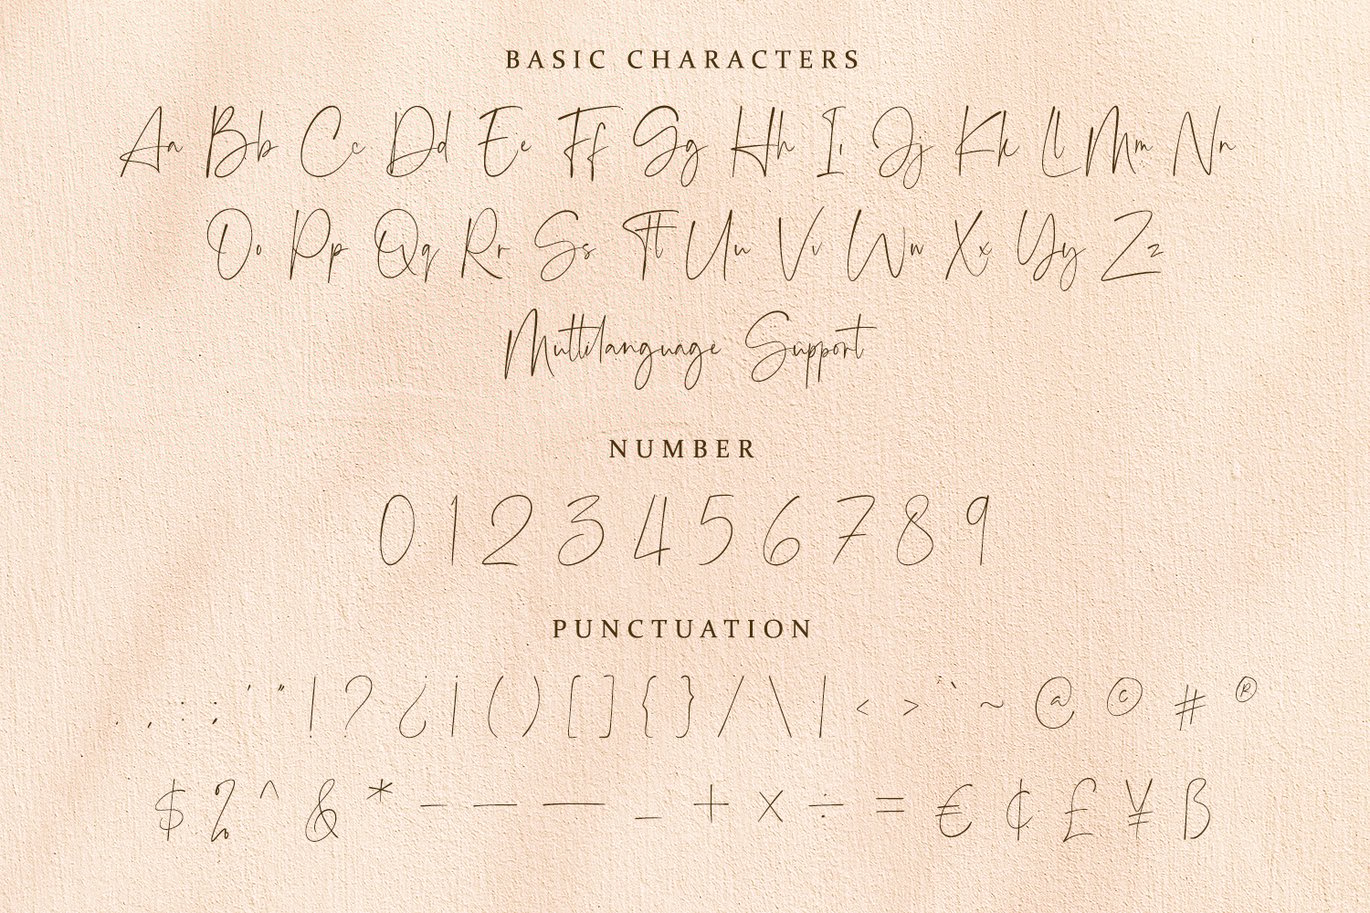 BASIC CHARACTERS
Aa Bb Cc Dd Ee Ff Gg Hh Ii Jj Kk Ll Mm Nn
Oo Pp Qq Rr Ss Tt Uu Vv Ww Xx Yy Zz
Multilanguage Support
NUMBER
0 1 2 3 4 5 6 7 8 9
PUNCTUATION
. , : ; ' " ! ? ¿ ¡ ( ) [ ] { } / \ | < > ¨ ` ~ @ © # ®
$ % ^ & * - – — _ + × ÷ = € ¢ £ ¥ ß